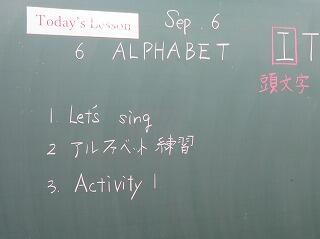 Today's Lesson
Sep. 6
6 ALPHABET
I T
頭文字
1. Let's sing
2 アルファベット練習
3. Activity 1